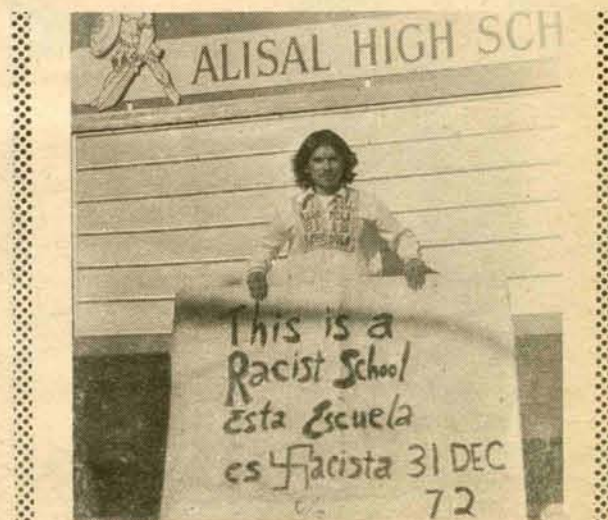 ALISAL HIGH SCH
This is a
Racist School
Esta Escuela
es 卐acista 31 DEC
72